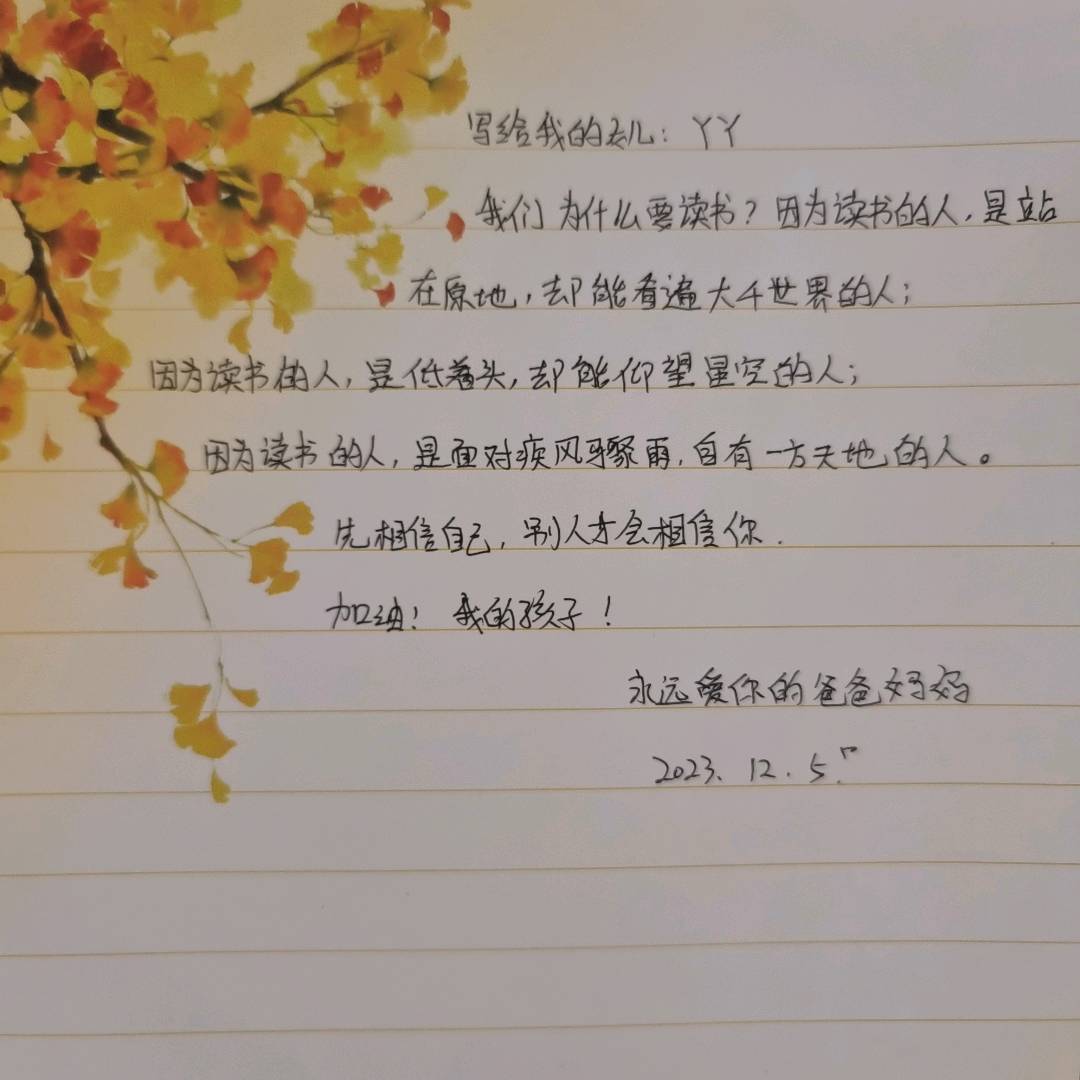 写给我的女儿：丫丫
我们为什么要读书？因为读书的人，是站
在原地，却能看遍大千世界的人；
因为读书的人，是低着头，却能仰望星空的人；
因为读书的人，是面对疾风骤雨，自有一方天地的人。
先相信自己，别人才会相信你．
加油！我的孩子！
永远爱你的爸爸妈妈
2023．12．5．